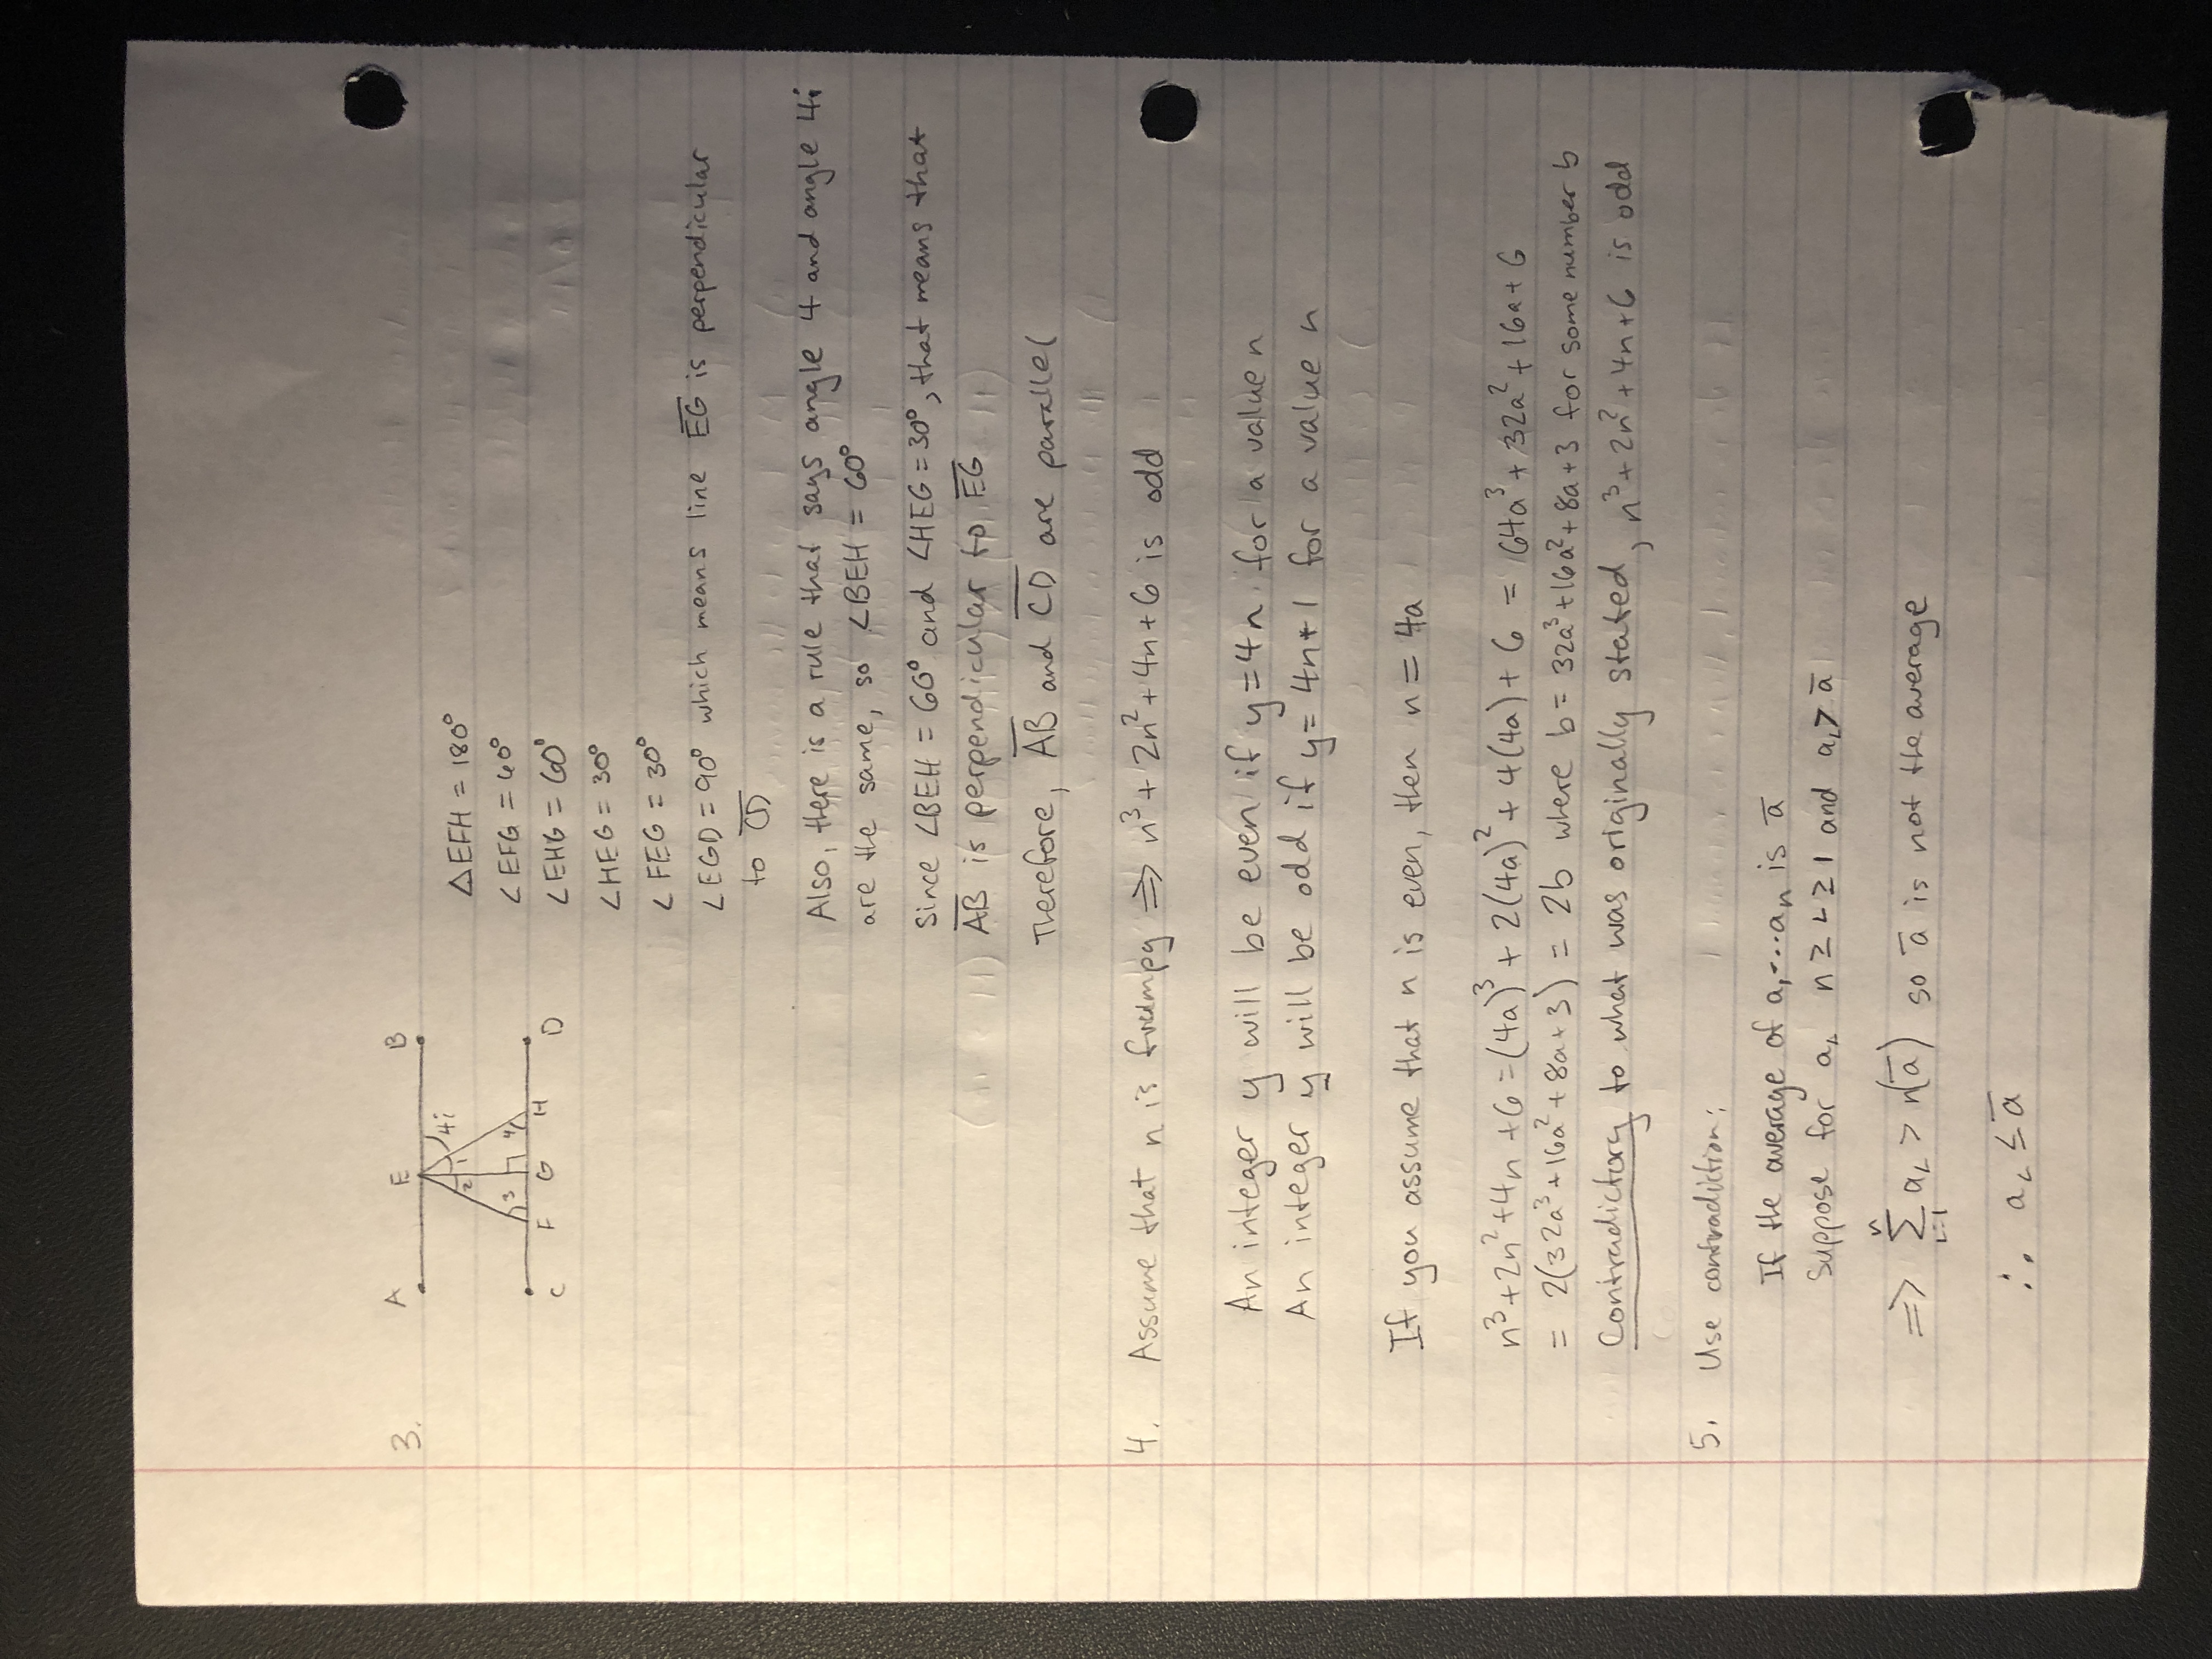 3.
A E B
4i
2 1
3 4
C F G H D
△EFH = 180°
∠EFG = 60°
∠EHG = 60°
∠HEG = 30°
∠FEG = 30°
∠EGD = 90° which means line E̅G̅ is perpendicular
to C̅D̅
Also, there is a rule that says angle 4 and angle 4i
are the same, so ∠BEH = 60°
Since ∠BEH = 60° and ∠HEG = 30°, that means that
A̅B̅ is perpendicular to E̅G̅
Therefore, A̅B̅ and C̅D̅ are parallel
4. Assume that n is frumpy ⇒ n³ + 2n² + 4n + 6 is odd
An integer y will be even if y = 4n for a value n
An integer y will be odd if y = 4n+1 for a value n
If you assume that n is even, then n = 4a
n³ + 2n² + 4n + 6 = (4a)³ + 2(4a)² + 4(4a) + 6 = 64a³ + 32a² + 16a + 6
= 2(32a³ + 16a² + 8a + 3) = 2b where b = 32a³ + 16a² + 8a + 3 for some number b
Contradictory to what was originally stated, n³ + 2n² + 4n + 6 is odd
5. Use contradiction:
If the average of a₁...aₙ is a̅
Suppose for aᵢ n ≥ i ≥ 1 and aᵢ > a̅
n
⇒ Σ aᵢ > n(a̅) so a̅ is not the average
i=1
∴ aᵢ ≤ a̅